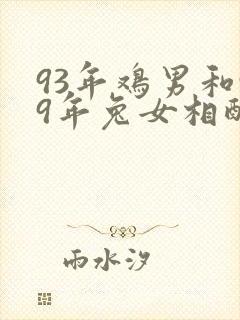 93年鸡男和
9年兔女相配
雨水汐